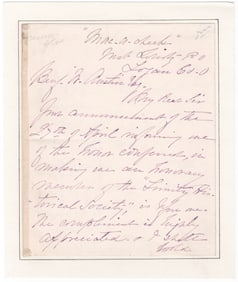 "Mac-o-cheek"
West Liberty P O
Logan Co. O
Very Dear Sir
Your announcement of the
27th of April informing me
of the honor conferred, in
making me an honorary
member of the "Trinity His
torical Society", is before me
The compliment is highly
appreciated &